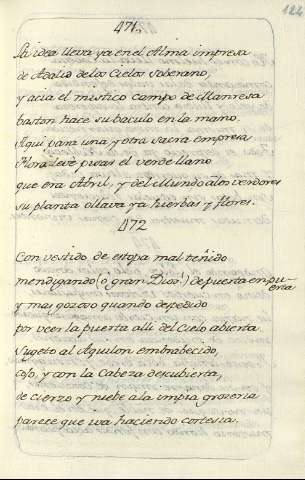 122
471.
La idea lleva ya en el Alma impresa
de Adalid de los Cielos Soberano,
y acia el mistico campo de Manresa
baston hace su baculo en la mano.
Aqui para una y otra sacra empresa
Flora leve pisas el verde llano
que era Abril, y del Mundo a los verdores
su planta ollava ya hierbas y flores.
472
Con vestido de estopa mal teñido
mendigando (o gran Dios!) de puerta en puerta
y mas gozoso quando despedido
por veer la puerta alli del Cielo abierta.
Sugeto al Aquilon embrabecido,
cojo, y con la Cabeza descubierta,
de cierzo y niebe a la impia groseria
parece que iva haciendo cortesia.